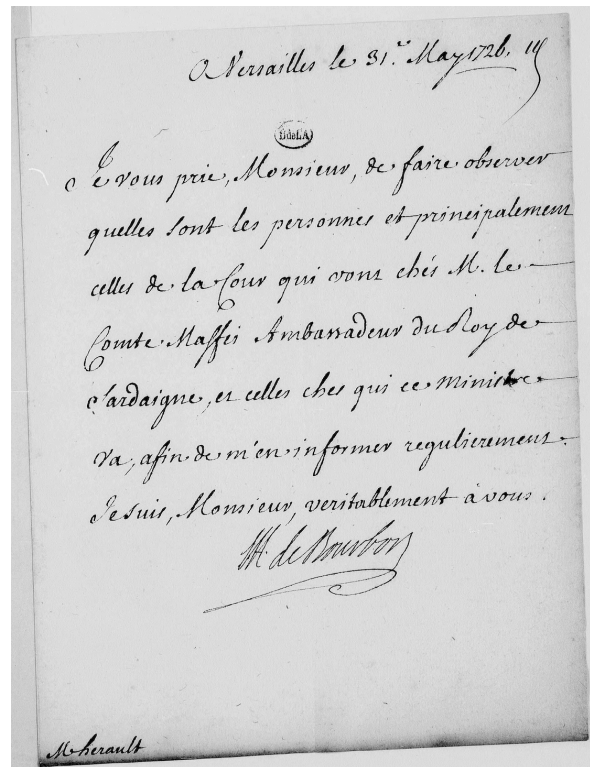 A Versailles le 31.e May 1726.
BdeLA
Je vous prie, Monsieur, de faire observer
quelles sont les personnes et principalement
celles de la Cour qui vont chés M. le
Comte Maffei Ambassadeur du Roy de
Sardaigne, et celles ches qui ce ministre
va, afin de m'en informer regulierement.
Je suis, Monsieur, veritablement à vous.
de Bourbon
Mr herault